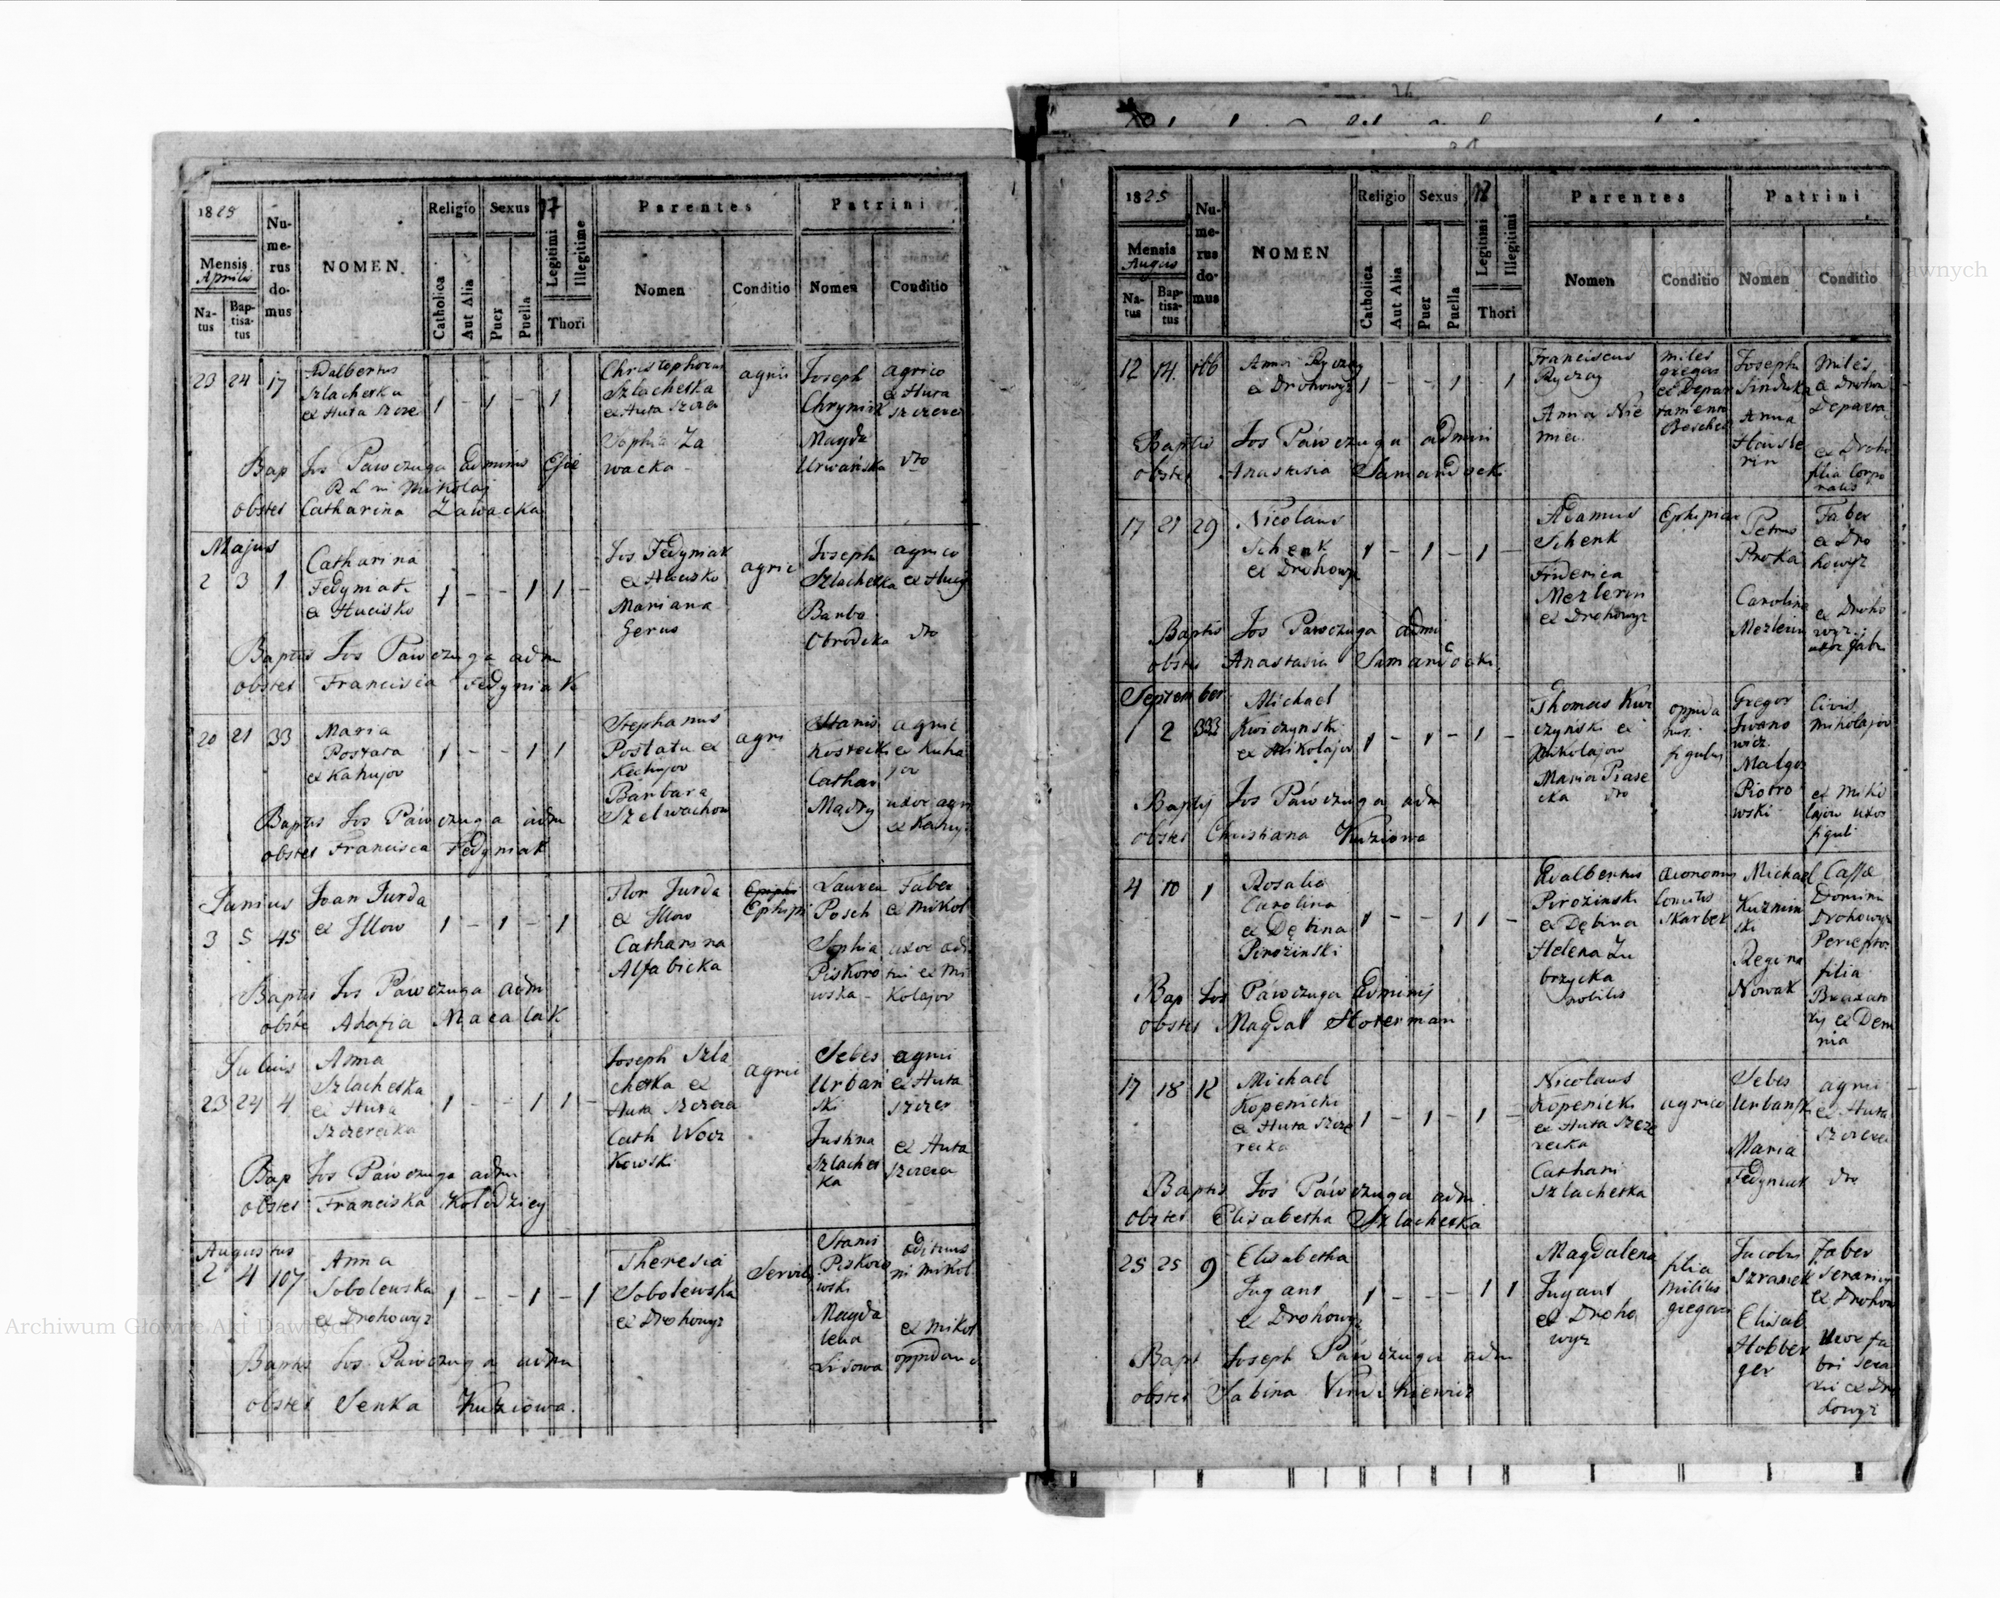 1825
Nu-
me-
rus
do-
mus
NOMEN.
Religio
Sexus
17
Parentes
Patrini
Mensis
Aprilis
Na-
tus
Bap-
tisa-
tus
Catholica
Aut Alia
Puer
Puella
Legitimi
Illegitime
Thori
Nomen
Conditio
Nomen
Conditio
23 24 17
Adalbertus
Szlachetka
ex Huta Szcze
1 - 1 - 1
Christophorus
Szlachetka
ex Huta Szcze
Sophia Za
wacka
agric
Joseph
Chrymiak
Magda
Urwańska
agrico
ex Huta
Szczere
dto
Bap Jos Pawczuga Adminis
Mikolaj
obstet Catharina Zawacka
Majus
2 3 1
Catharina
Fedyniak
ex Hucisko
1 - - 1 1 -
Jos Fedyniak
ex Hucisko
Mariana
Gerus
agric
Joseph
Szlachetka
Barba
Obrocka
agrico
dto
Baptis Jos Pawczuga adm
obstet Francisca Fedyniak
20 21 33
Maria
Postata
ex Kahujow
1 - - 1 1
Stephanus
Postata ex
Kahujow
Barbara
Szelwachow
agri
Stanis
Kostecki
Cathar
Mądry
agric
ex Kahu
jow
uxor agri
ex Kahuj
Baptis Jos Pawczuga adm
obstet Francisca Fedyniak
Junius
3 5 45
Joan Jurda
ex Illow
1 - 1 - 1
Flor Jurda
ex Illow
Catharina
Alfabicka
Ephipi
Lauren
Posch
Sophia
Piskoro
wska
Faber
ex Mikol
uxor
ex Mi
kolajow
Baptis Jos Pawczuga adm
obste Ahafia Macalak
Julius
23 24 4
Anna
Szlachetka
ex Huta
Szczerecka
1 - - 1 1 -
Joseph Szla
chetka ex
Huta Szczerec
Cath Wocz
kowski
agric
Sebes
Urbań
ski
Justina
Szlachet
ka
agric
ex Huta
Szczer
ex Huta
Szczerec
Bap Jos Pawczuga adm
obstet Franciska Kołodziey
Augustus
2 4 107
Anna
Sobolewska
ex Drohowyz
1 - - 1 - 1
Theresia
Sobolewska
ex Drohowyz
Stanis
Piskoro
wski
Magda
lena
Lisowa
ex Mikol
Baptis Jos Pawczuga adm
obstet Senka Kuziowa.
1825
Nu-
me-
rus
do-
mus
NOMEN
Religio
Sexus
Parentes
Patrini
Mensis
Augus
Na-
tus
Bap-
tisa-
tus
Catholica
Aut Alia
Puer
Puella
Legitimi
Illegitimi
Thori
Nomen
Conditio
Nomen
Conditio
12 14
Anna Ryczay
ex Drohowyz
1 - - 1 - 1
Franciscus
Ryczay
Anna Nie
miles
gregar
Joseph
Anna
Hausle
rin
Miles
ex Droho
filia Corpo
ralis
Baptis Jos Pawczuga admini
obstet Anastasia Samandocki
17 21 29
Nicolaus
Schenk
ex Drohowyz
1 - 1 - 1 -
Adamus
Schenk
Friderica
Mezlerin
ex Drohowyz
Ephipiar
Petrus
Proka
Caroline
Mezlerin
Faber
ex Dro
howyz
ex Droho
wyz
uxor fabr
Baptis Jos Pawczuga admi
obstet Anastasia Samandocki
September
1 2 333
Michael
Kurczynski
ex Mikolajow
1 - 1 - 1 -
Thomas Kur
czyński ex
Mikolajow
Maria Piase
cka dto
oppida
nus
figulus
Gregor
Iwano
wicz
Malgor
Piotro
wski
Civis
Mikolajow
ex Miko
lajow uxor
figuli
Baptis Jos Pawczuga adm
obstet Christiana Kuziowa
4 10 1
Rosalia
Carolina
ex Dębina
Pirozinski
1 - - 1 1 -
Adalbertus
Pirozinski
ex Dębina
Helena Zu
brzycka
nobilis
oeconomus
Comitis
Skarbek
Michael
Kuzmin
ski
Regina
Nowak
Cassae
Dominii
Drohowyz
Perceptor
filia
Braxato
ris ex Dem
nia
Bap Jos Pawczuga Adminis
obstet Magdal Hoterman
17 18 12
Michael
Kopenicki
ex Huta Szcze
recka
1 - 1 - 1 -
Nicolaus
Kopenicki
ex Huta Szcze
recka
Cathari
Szlachetka
agrico
Sebes
Urbańsk
Maria
Fedyniak
agric
ex Huta
Szczerec
dto
Baptis Jos Pawczuga adm
obstet Elisabetha Szlachetka
25 25 9
Elisabetha
Jugant
ex Drohowyz
1 - - - 1 1
Magdalena
Jugant
ex Droho
wyz
filia
Militis
gregari
Jacobus
Szranek
Elisab
Hobber
ger
Faber
serarius
ex Drohow
uxor fa
bri sera
rii ex Dro
howyz
Bapt Joseph Pawczuga adm
obstet Sabina
Archiwum Główne Akt Dawnych
Archiwum Główne Akt Dawnych